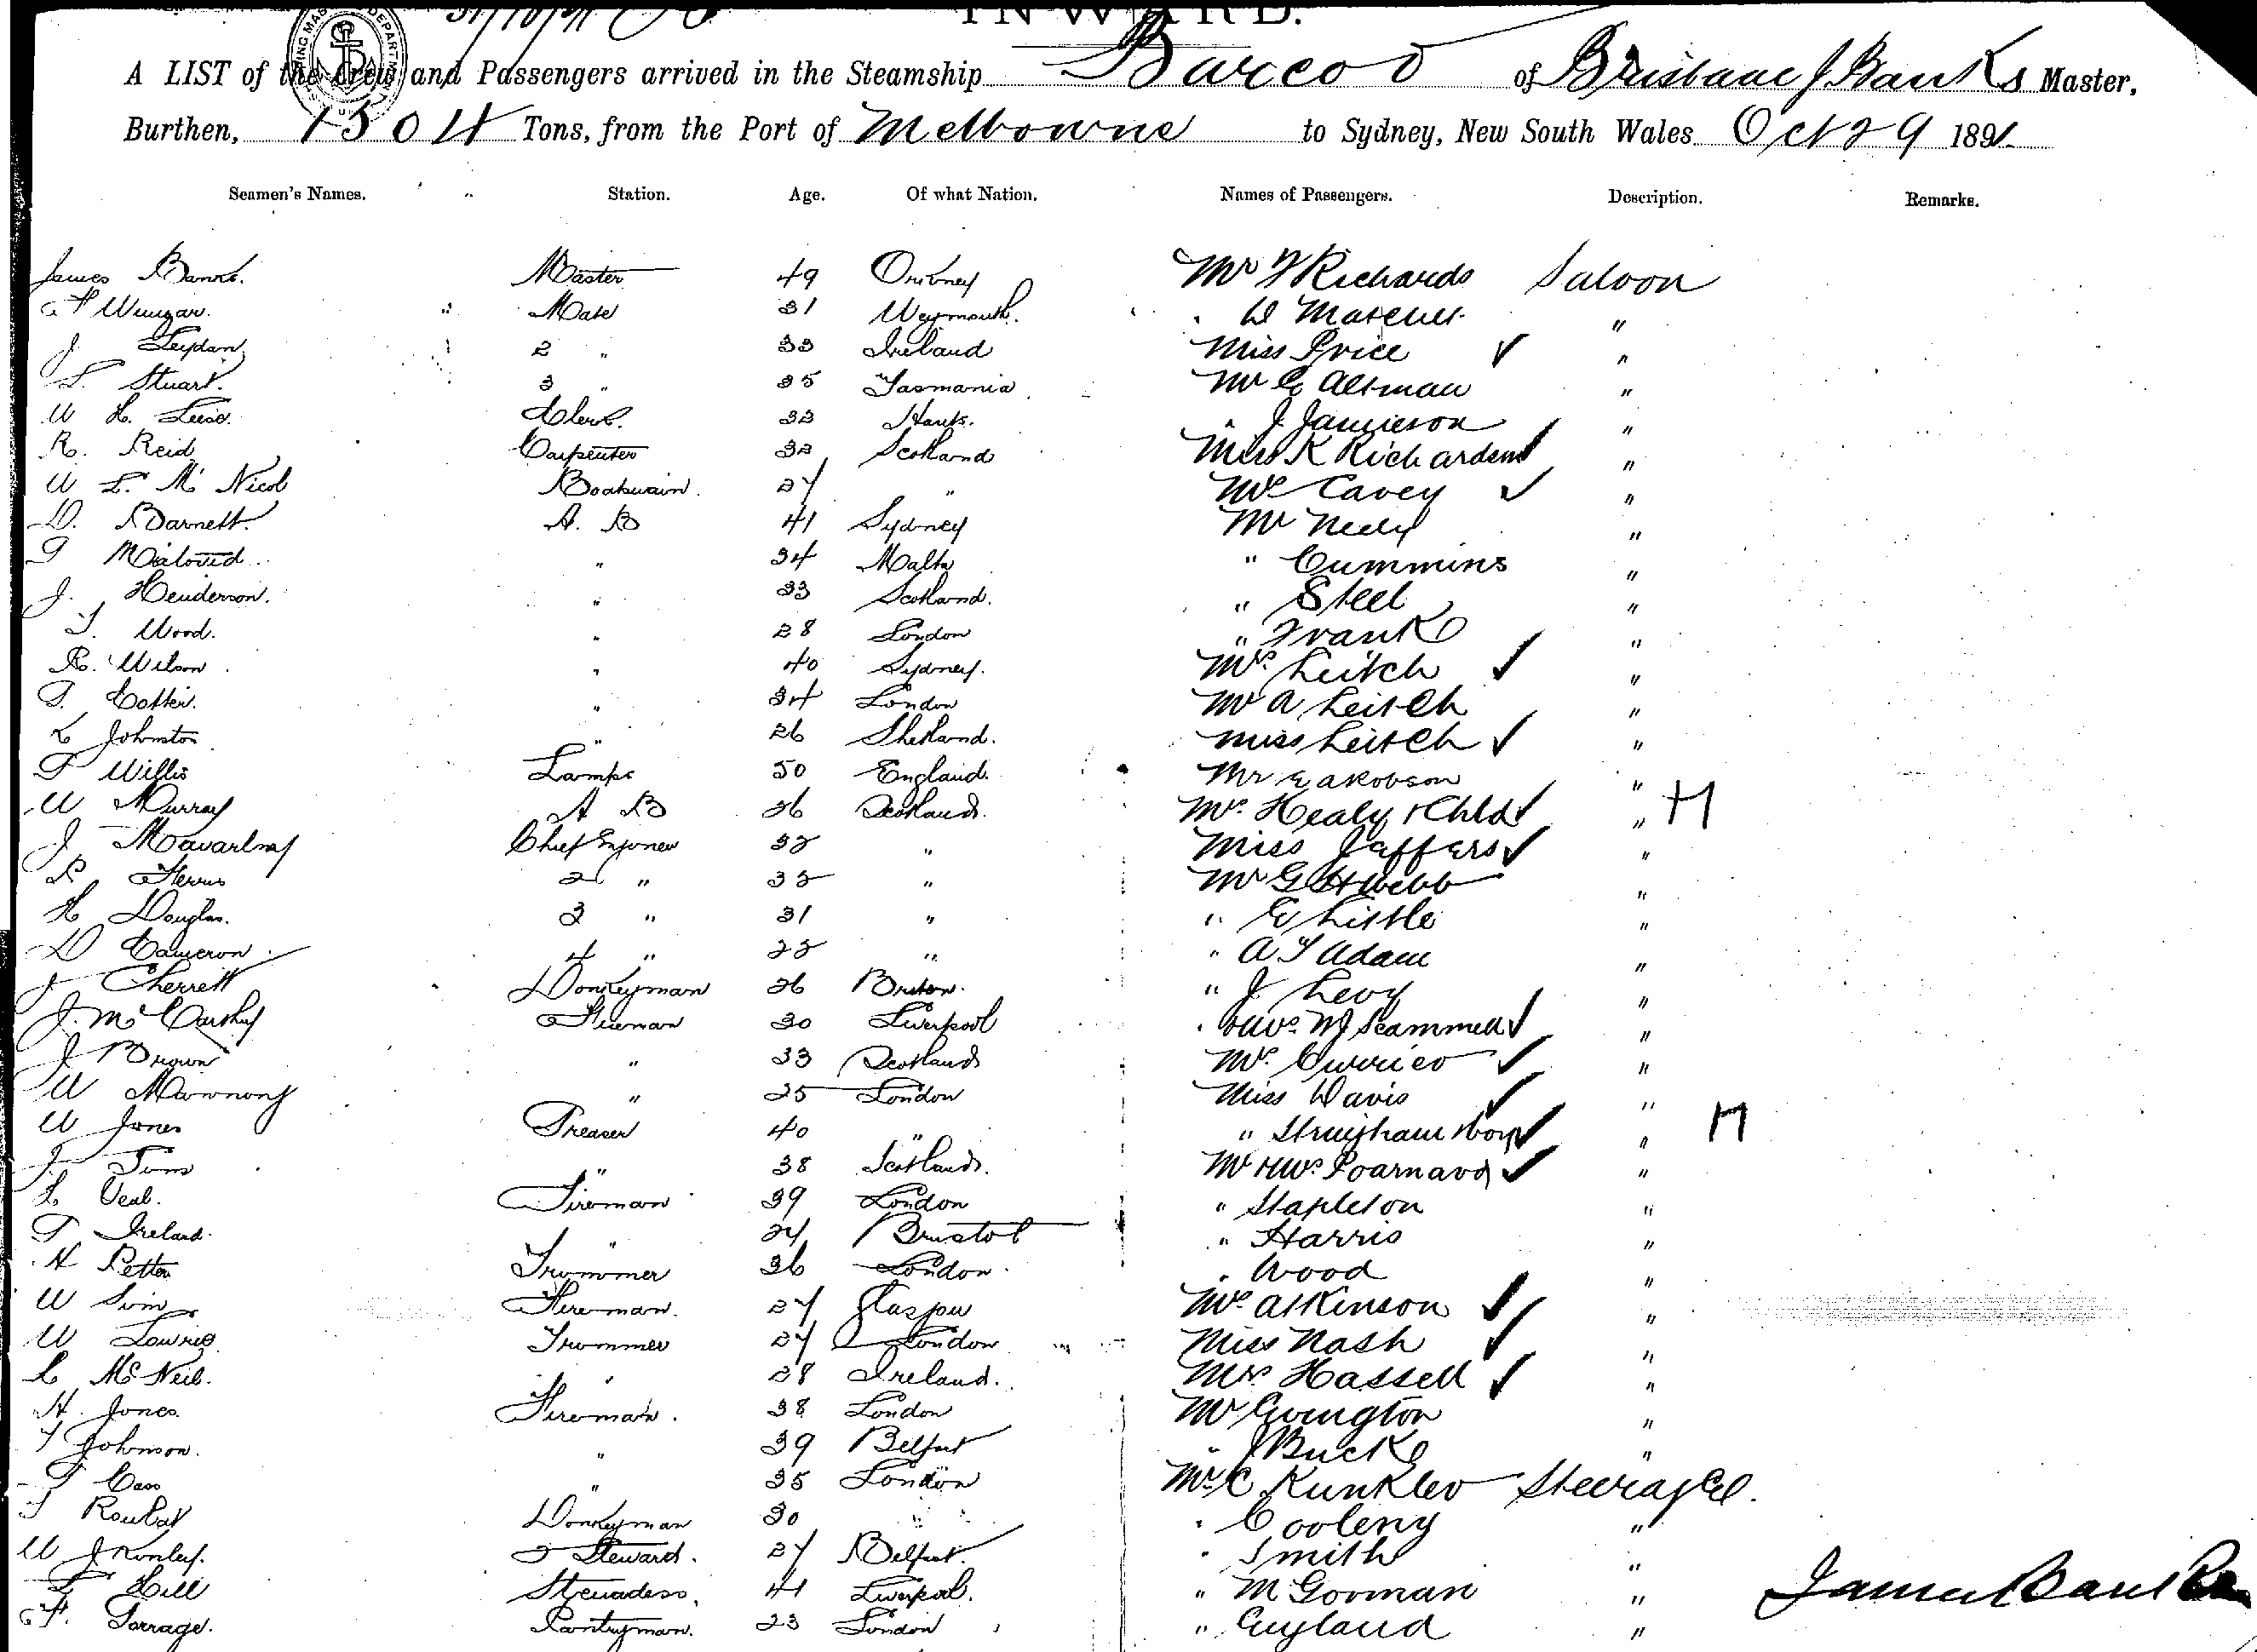 INWARD.
A LIST of the Crew and Passengers arrived in the Steamship Barcoo of Brisbane J Banks Master,
Burthen, 1504 Tons, from the Port of Melbourne to Sydney, New South Wales Oct 29 1891.
Seamen's Names. Station. Age. Of what Nation. Names of Passengers. Description. Remarks.
James Banks. Master 49 Orkney Mr F Richards Saloon
Mate 31 Weymouth. " W "
J Leydan 2 " 33 Ireland Miss Price "
Stuart. 3 " 35 Tasmania Mr Altman "
W H. Clerk. 33 Hants. " J Jamieson "
R. Reid Carpenter Scotland Miss K Richardson "
W L. Mc Nicol Boatswain. 27 " Mrs Cavey "
D. Barnett. A. B 41 Sydney Mr Neely "
" 34 Malta " Cummins "
J. Henderson. " 33 Scotland. " Steel "
T. Wood. " 28 London " Frank "
R. Wilson " 40 Sydney. Mrs Leitch "
Cotter. " 34 London Mr A Leitch "
L Johnston " 26 Shetland. Miss Leitch "
Willis Lamps 50 England. Mr "
W Murray A B 36 Scotland. Mrs Healy & Chld " H
J Chief Engineer " Miss Jaffers "
2 " " Mr G H Webb "
H Douglas. 3 " 31 " " E Little "
D Cameron 4 " " " A T Adam "
J Cherrett Donkeyman 36 " J Levy "
J. McCarthy Fireman 30 Liverpool W J Scammell "
J Brown " 33 Scotland Mrs "
W " 25 London Miss Davis "
W Jones Greaser 40 " " "
J. " 38 Scotland. Mr & Mrs "
Veal. Fireman 39 London " Stapleton "
Ireland. " Bristol " Harris "
H Trimmer 36 London. " Wood "
W Sim Fireman. 27 Glasgow Mrs Atkinson "
W Lowrie Trimmer 27 London Miss Nash "
McNeil. " 28 Ireland. Mrs Hassell "
H. Jones. Fireman. 38 London Mr "
Johnson. " 39 Belfast " J Buck "
Cass " 35 London Mr C Kunkler Steerage.
Donkeyman 30 " " "
W J 2 Steward. 27 Belfast. " Smith "
Hill Stewardess. 41 Liverpool. " M Gorman " James Banks
Pantryman. 23 London " England "